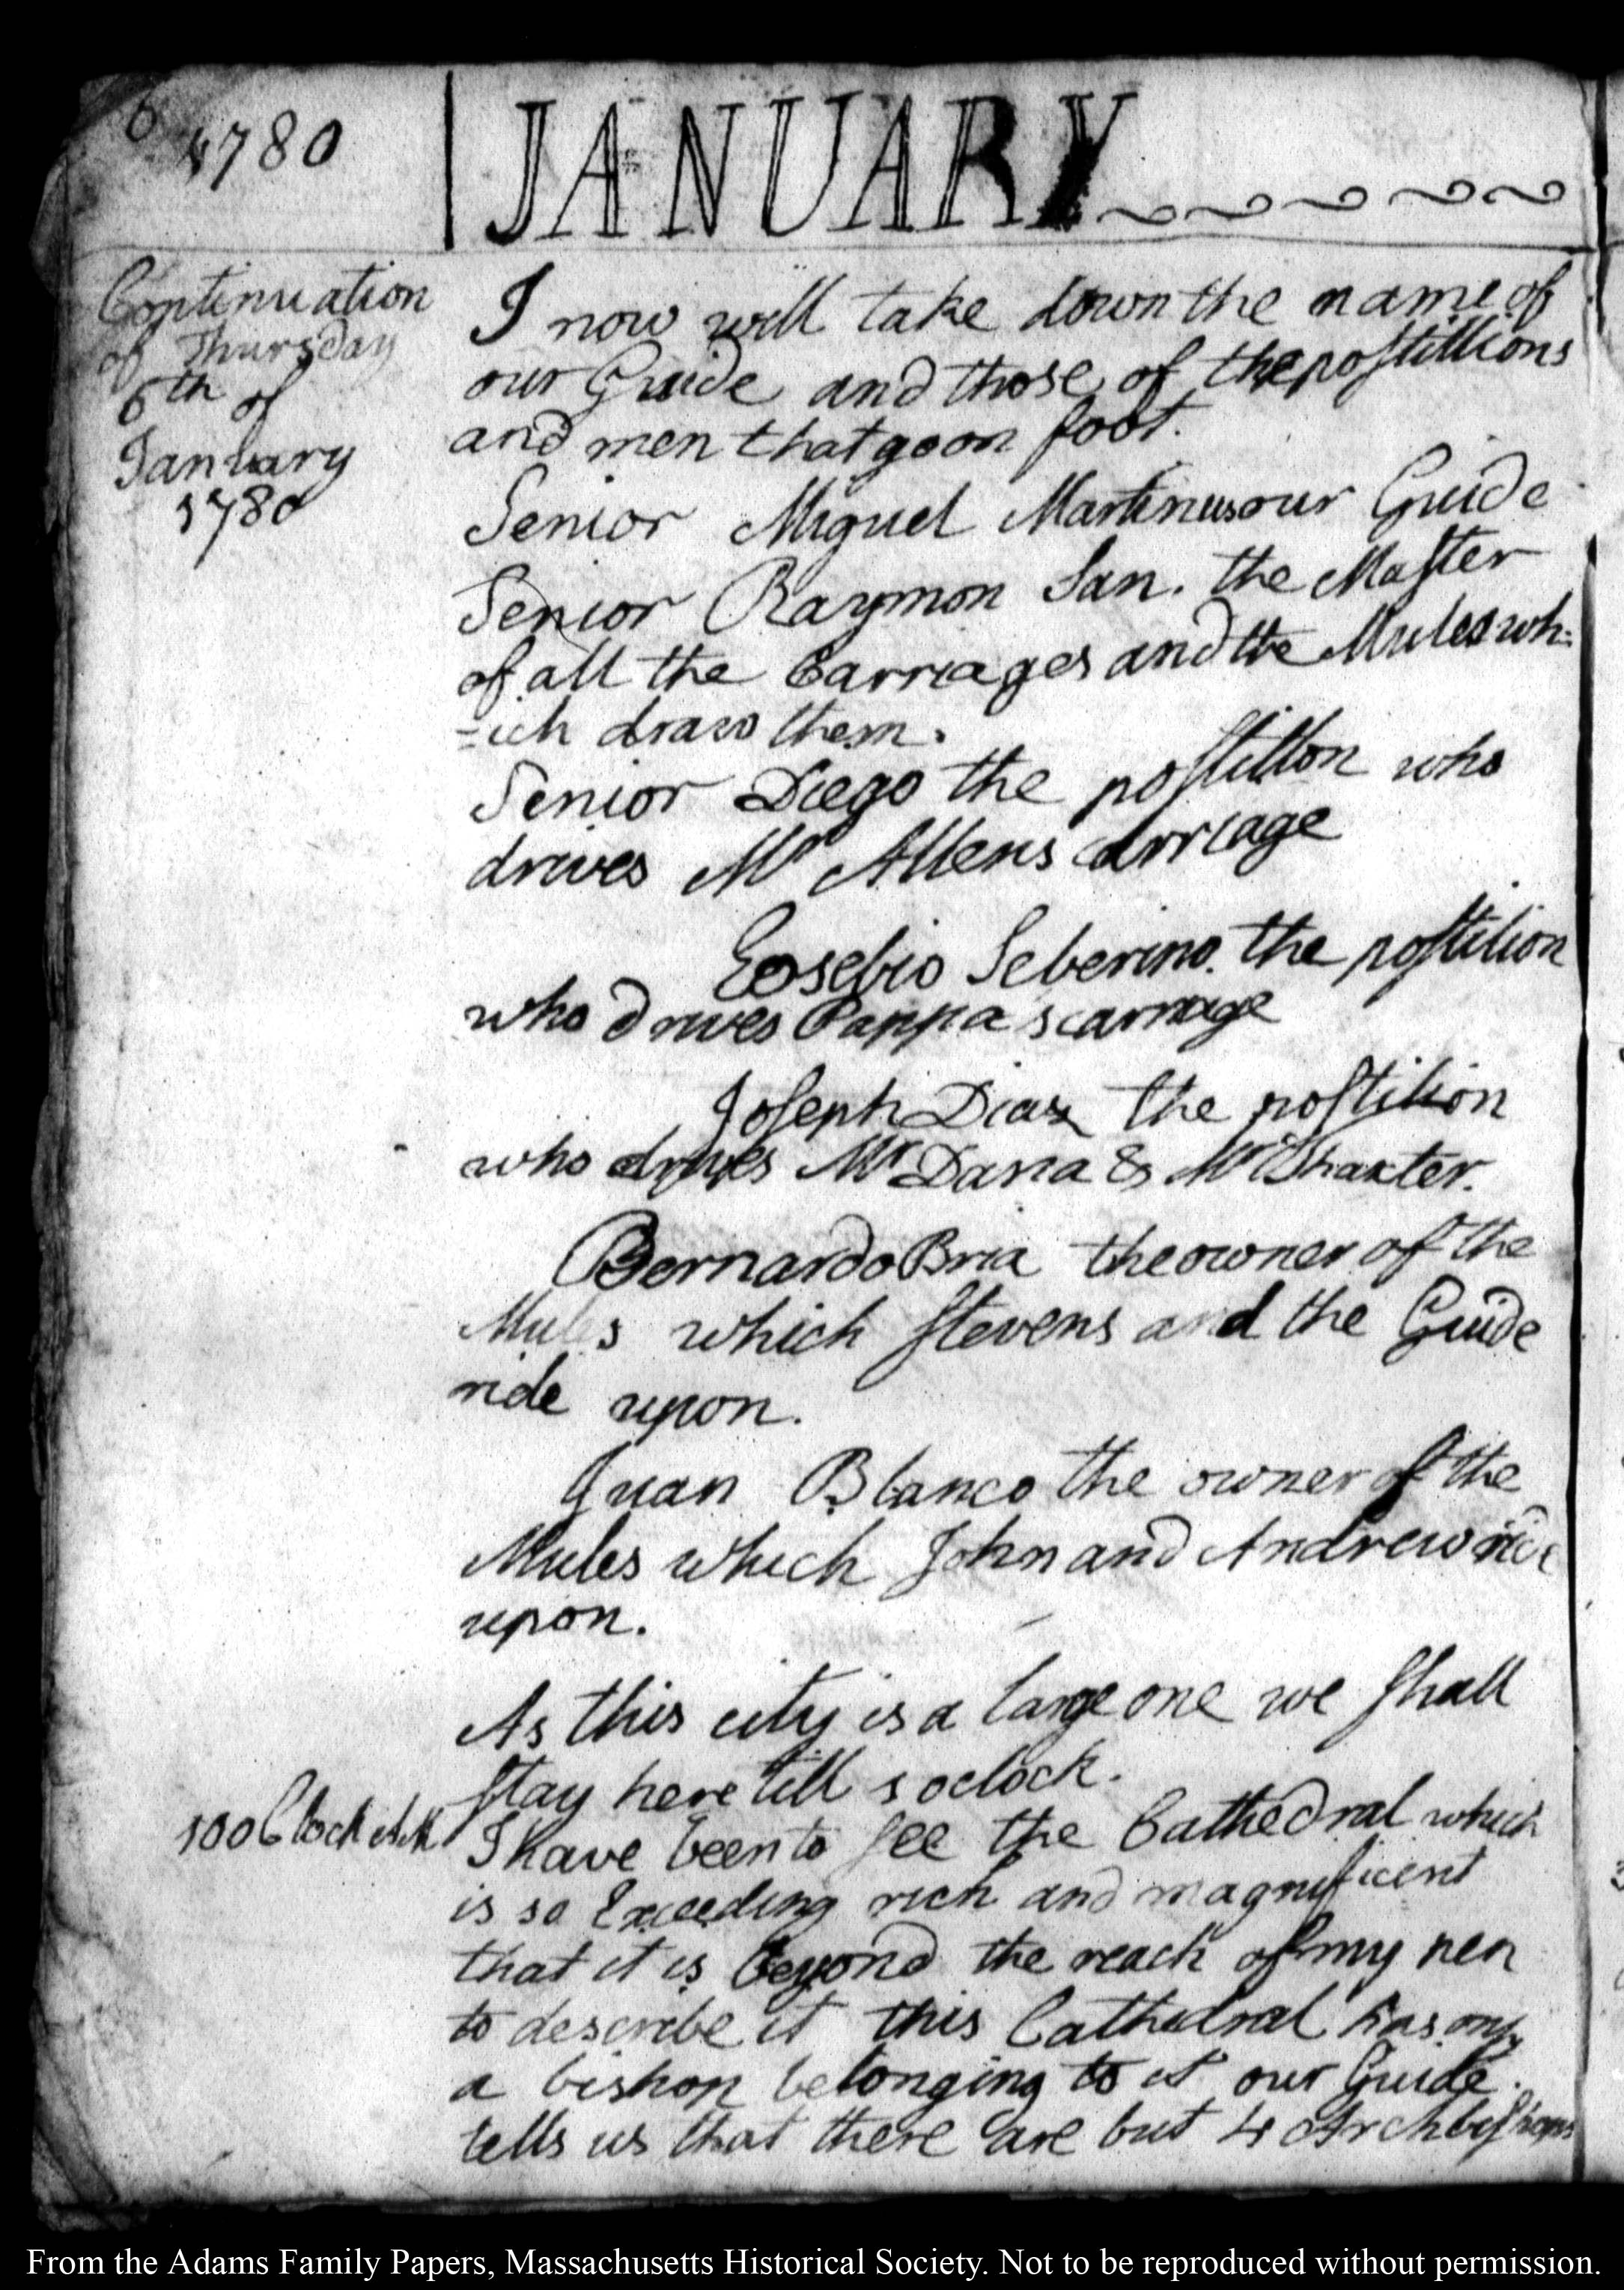 6
1780
JANUARY
Continuation
of Thursday
6th of
January
1780
I now will take down the name of
our Guide and those of the postillions
and men that go on foot.
Senior Miguel Martinus our Guide
Senior Raymon San. the Master
of all the Carriages and the Mules wh=
=ich draw them.
Senior Diego the postillon who
drives Mr Allens carriage
Eosebio Seberino. the postilion
who drives Pappa's carriage
Joseph Diaz the postilion
who drives Mr Dana & Mr Thaxter.
Bernardo Bria the owner of the
Mules which Stevens and the Guide
ride upon.
Juan Blanco the owner of the
Mules which John and Andrew ride
upon.
As this city is a large one we shall
stay here till 1 oclock.
10 o Clock AM
I have been to see the Cathedral which
is so Exceeding rich and magnificent
that it is beyond the reach of my pen
to describe it this Cathedral has only
a bishop belonging to it our Guide.
tells us that there are but 4 Archbishops
From the Adams Family Papers, Massachusetts Historical Society. Not to be reproduced without permission.